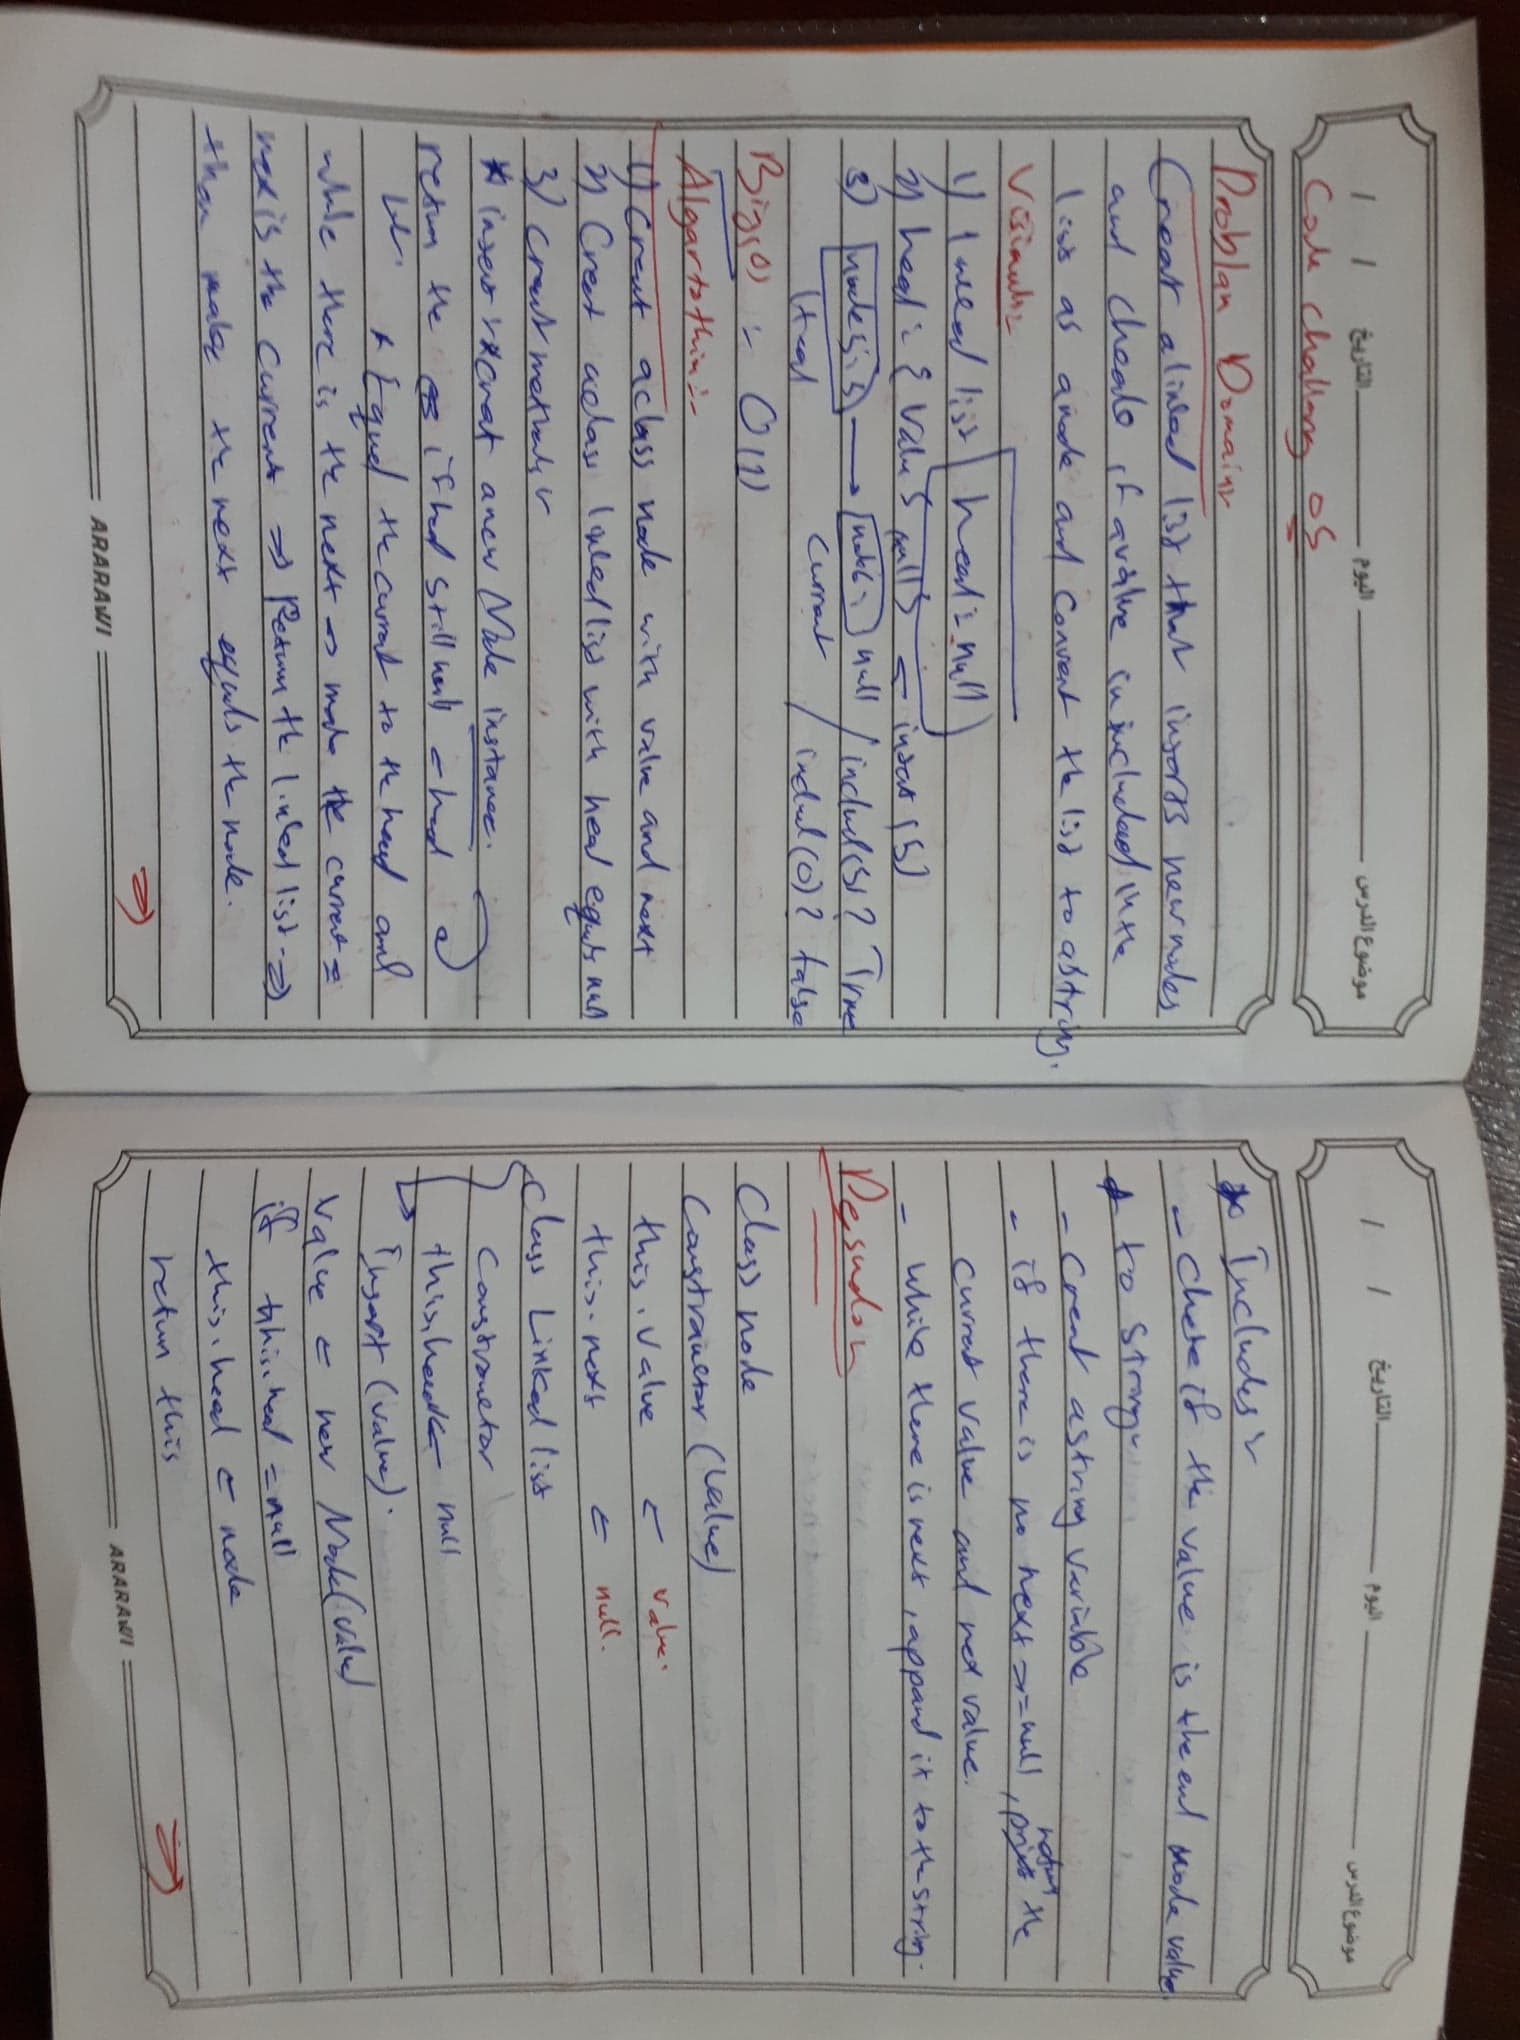 / / التاريخ اليوم موضوع الدرس
Code challang 05
Problan Domain:
Creat a linked list that insorss new nodes
and cheack if a value in included in the
list as a node and convert the list to a string.
Visiauls:
1) I need list head = null
2) head = { value 5 null } ← insert (5)
3) node(5) → node null / includ(5)? True
Head current / includ(0)? false
Big(O) :- O(1)
Algartothim:-
1) Creat a class node with value and next
2) Creat a class linked list with head equls null
3) Creat methods
* insert creat a new Node instance.
return the if head still null ← head
* Equel the current to the head and
while there is the next → make the current =
next is the current ⇒ Return the linked list ⇒
than make the next equels the node.
ARARAWI
/ / التاريخ اليوم موضوع الدرس
* Includes
- Check if the value is the end node value.
* to string
- Creat a string variable
- if there is no next → = null, return the
current value and next value.
- while there is next, appand it to the string.
Pesudo
Class node
Constrauctor (Value)
this.value ← value.
this.next ← null.
Class Linked list
Constructor
this.head ← null
insert (value).
Value ← new Node(value)
if this.head = null
this.head ← node
return this
ARARAWI